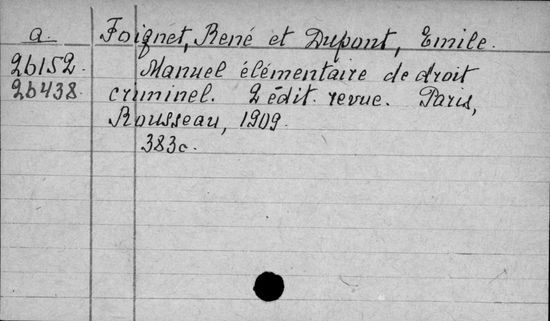 a. Foignet, René et Dupont, Emile.
26152. Manuel élémentaire de droit
26438. criminel. 2 édit. revue. Paris,
Rousseau, 1909.
383c.